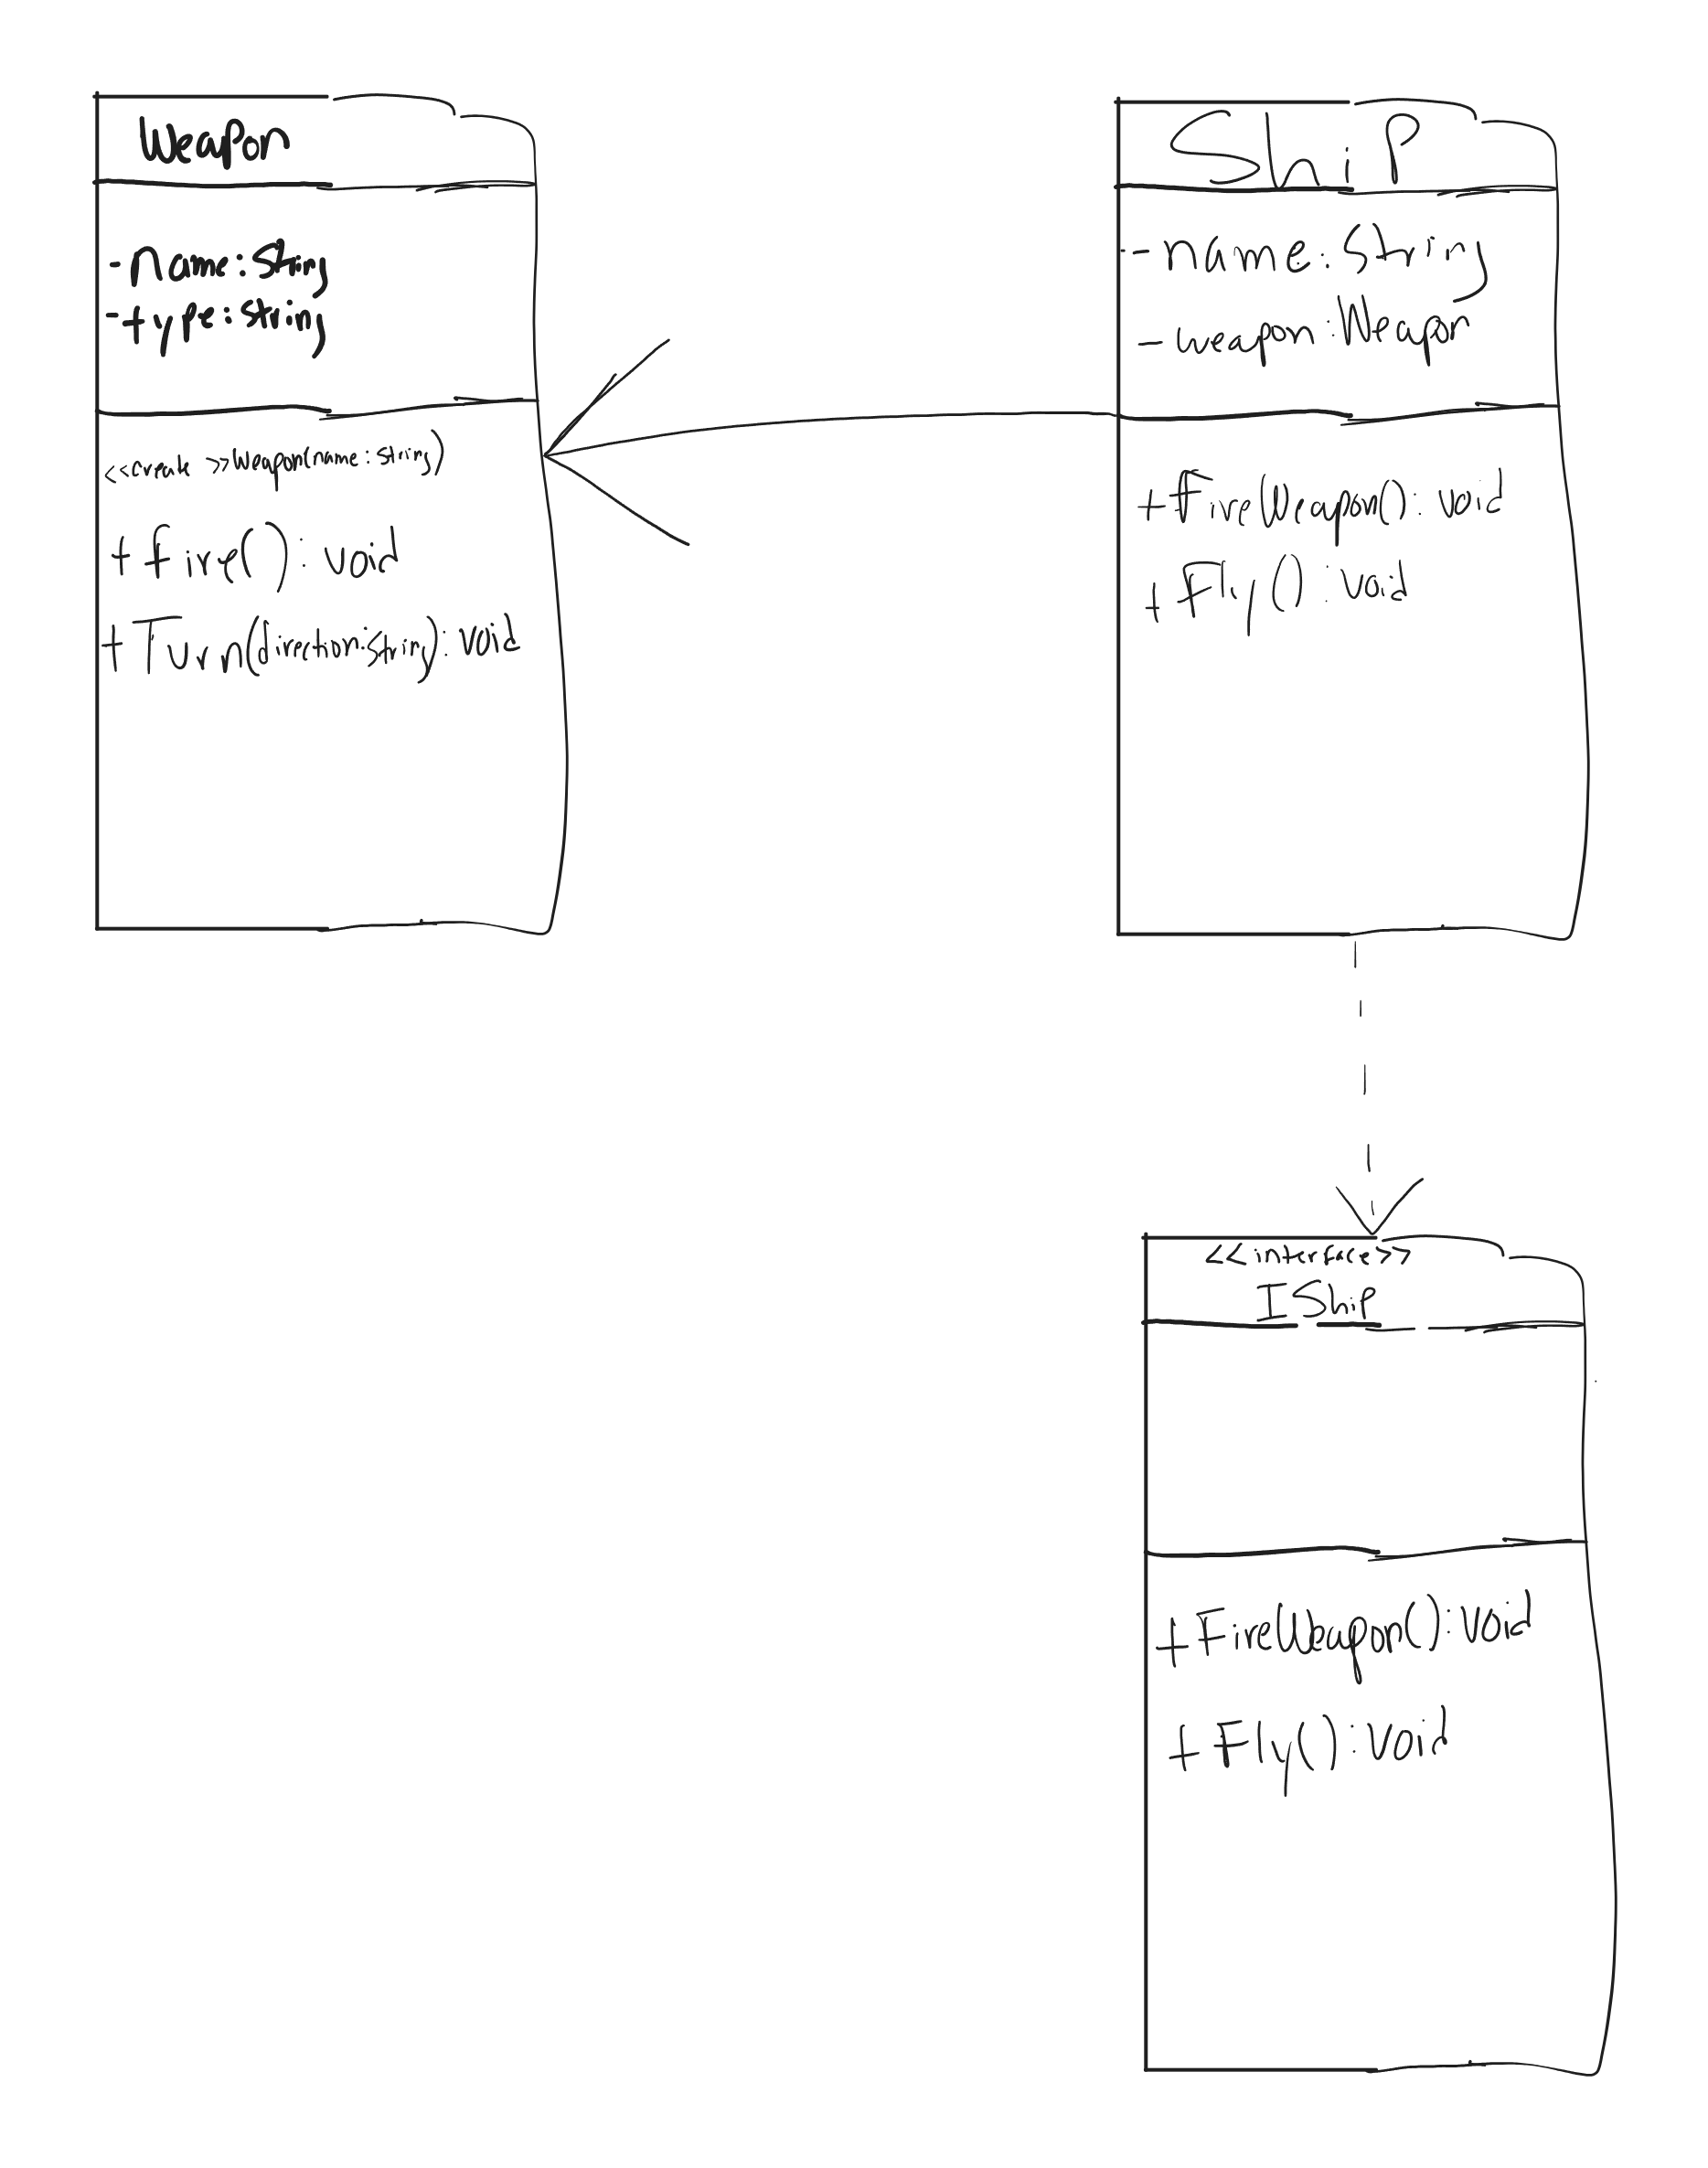 Weapon
-name:String
-type:string
<<create >>Weapon(name:string)
+fire():void
+Turn(direction:String):void
Ship
-name:String
-weapon:Weapon
+FireWeapon():void
+Fly():void
<<interface>>
IShip
+FireWeapon():void
+Fly():void